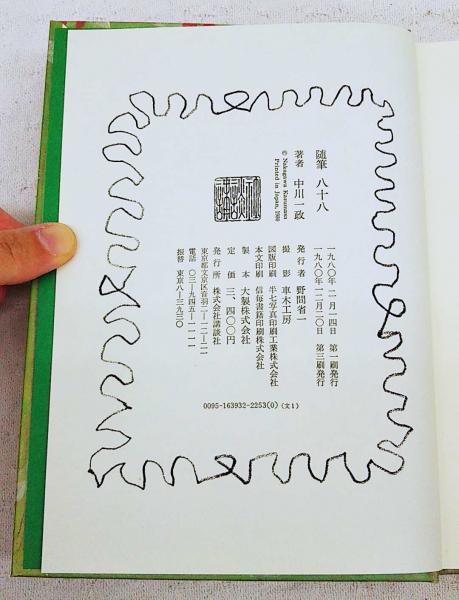 随筆 八十八
著者 中川一政
© Nakagawa Kazumasa
Printed in Japan, 1980
一九八〇年一一月一四日 第一刷発行
一九八〇年一二月二〇日 第三刷発行
発行者 野間省一
撮影 車木工房
図版印刷 半七写真印刷工業株式会社
本文印刷 信毎書籍印刷株式会社
製本 大製株式会社
定価 三、四〇〇円
発行所 株式会社講談社
東京都文京区音羽二―一二―二一
電話 〇三―九四五―一一一一
振替 東京八―三九三〇
0095-163932-2253(0) (文1)